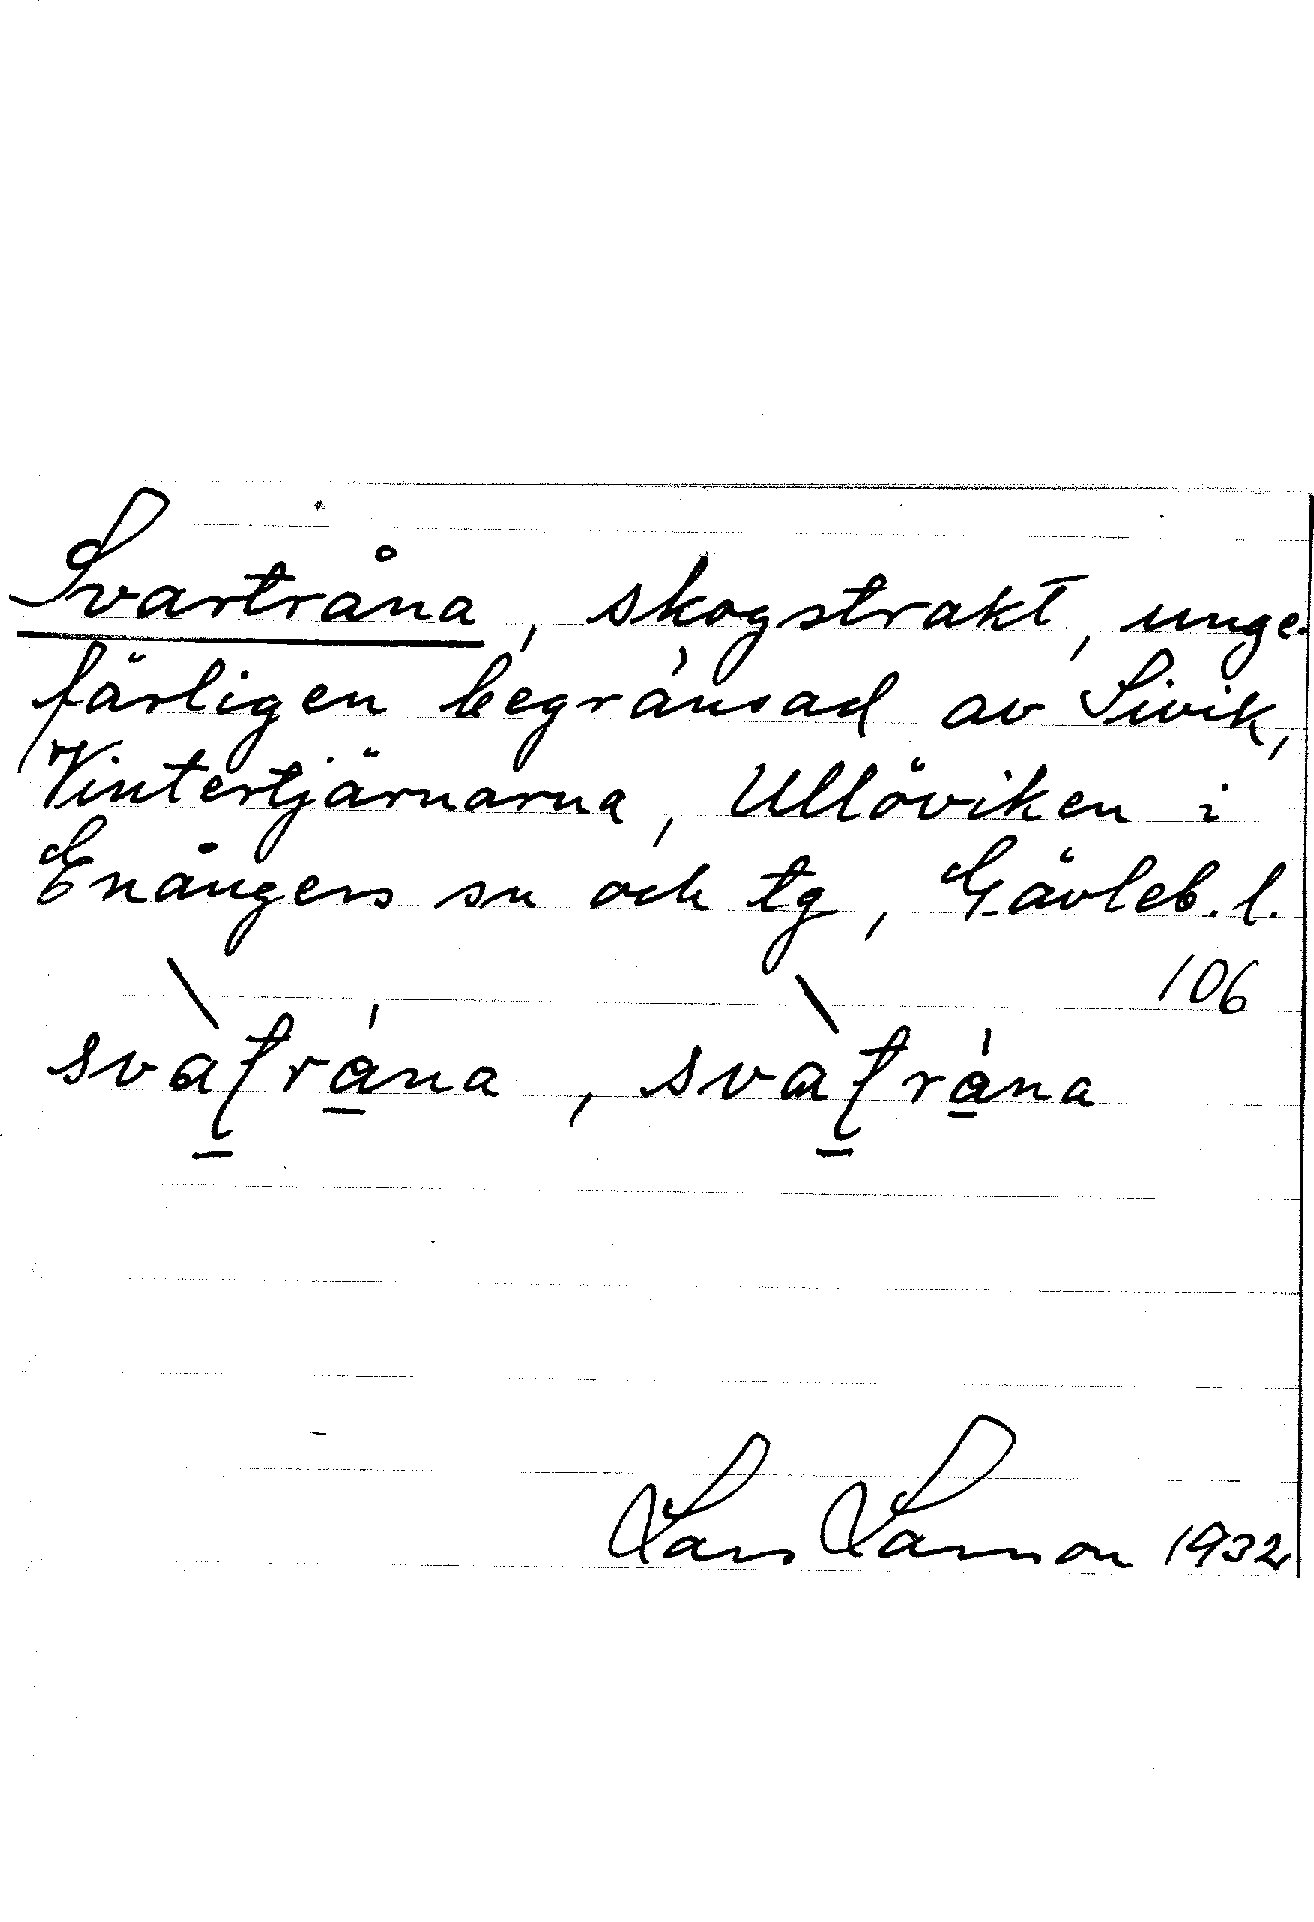 Svartråna, skogstrakt, unge-
färligen begränsad av Sivik,
Vintertjärnarna, Ullöviken i
Enångers sn och tg, Gävleb. l.
106
svatråna, svatråna
Lars Larsson 1932